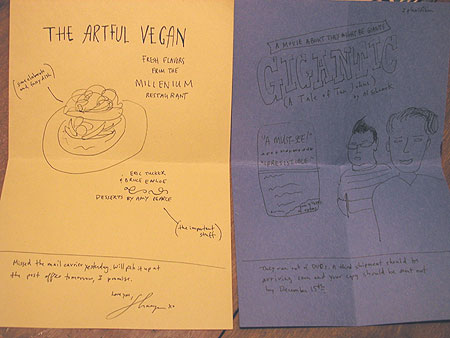 THE ARTFUL VEGAN
FRESH FLAVORS
FROM THE
MILLENIUM
RESTAURANT
ERIC TUCKER
& BRUCE ENLOE
DESSERTS BY AMY PEARCE
(the important
stuff)
Missed the mail carrier yesterday. Will pick it up at
the post office tomorrow, I promise.
Love you,
xo
A MOVIE ABOUT THEY MIGHT BE GIANTS
GIGANTIC
(A Tale of Two Johns)
"A MUST-SEE!"
They ran out of DVDs. A third shipment should be
arriving soon and your copy should be sent out
by December 15th.